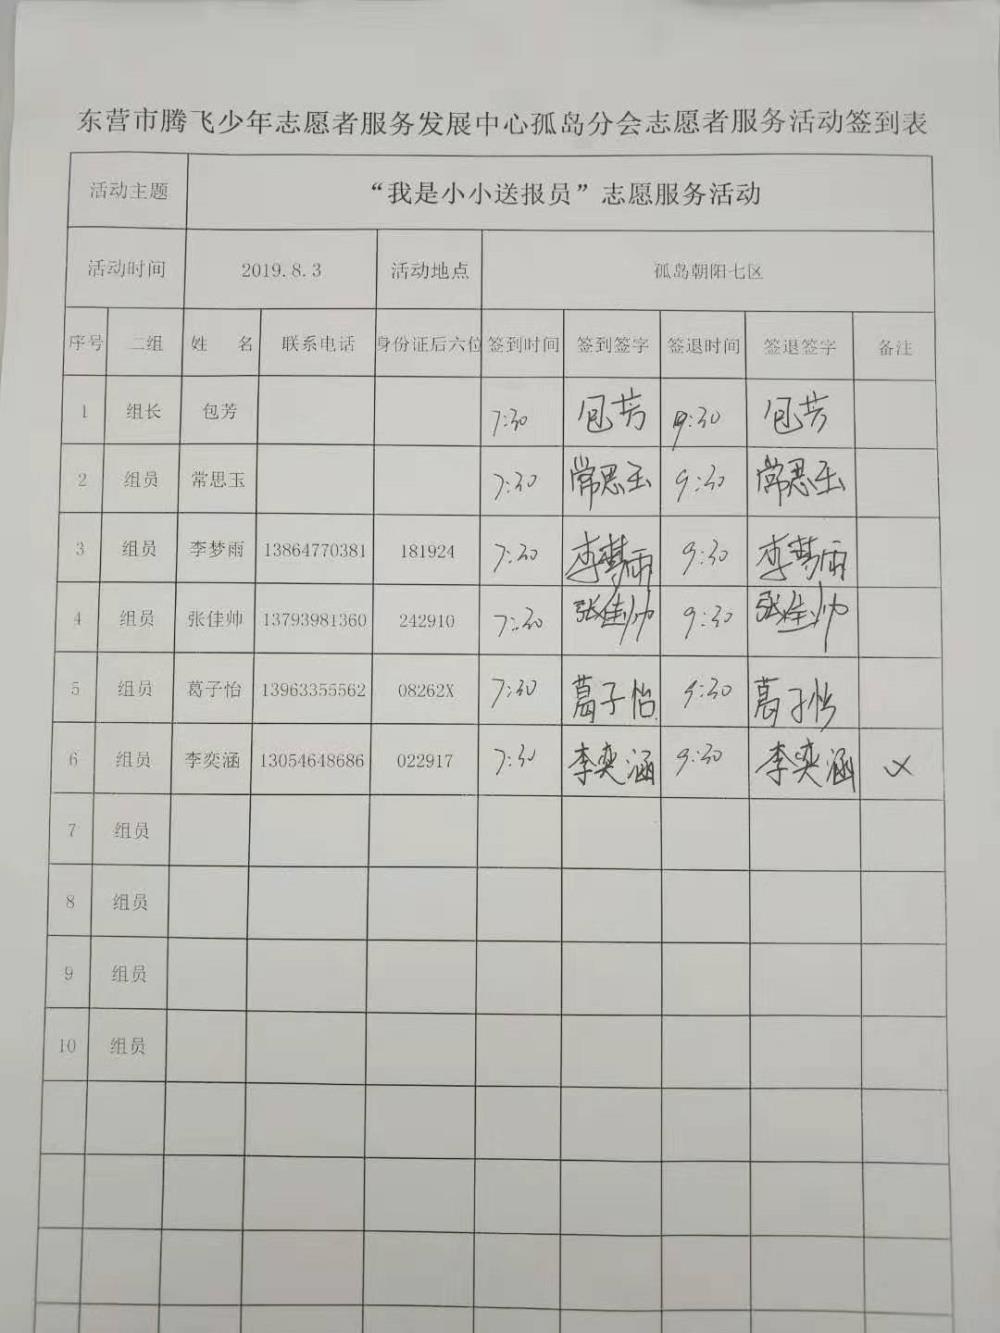 东营市腾飞少年志愿者服务发展中心孤岛分会志愿者服务活动签到表
活动主题 “我是小小送报员”志愿服务活动
活动时间 2019.8.3 活动地点 孤岛朝阳七区
序号 二组 姓 名 联系电话 身份证后六位 签到时间 签到签字 签退时间 签退签字 备注
1 组长 包芳 7:30 包芳 9:30 包芳
2 组员 常思玉 7:30 常思玉 9:30 常思玉
3 组员 李梦雨 13864770381 181924 7:30 李梦雨 9:30 李梦雨
4 组员 张佳帅 13793981360 242910 7:30 张佳帅 9:30 张佳帅
5 组员 葛子怡 13963355562 08262X 7:30 葛子怡 9:30 葛子怡
6 组员 李奕涵 13054648686 022917 7:30 李奕涵 9:30 李奕涵
7 组员
8 组员
9 组员
10 组员